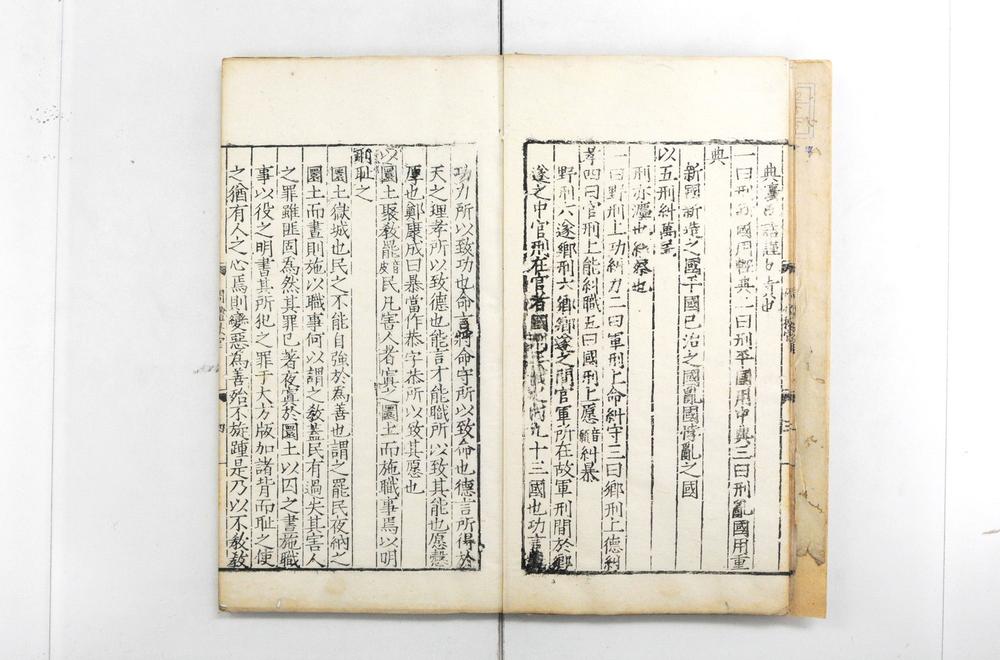 一曰刑新國用輕典二曰刑平國用中典三曰刑亂國用重
典
新國新造之國平國已治之國亂國悖亂之國
以五刑糾萬民
刑亦灋也糾察也
一曰野刑上功糾力二曰軍刑上命糾守三曰鄉刑上德糾
孝四曰官刑上能糾職五曰國刑上愿音願糾暴
野刑六遂鄉刑六鄉鄉遂之間官軍所在故軍刑間於鄉
遂之中官刑在官者國十三國也功言
功力所以致功也命言將命守所以致命也德言所得於
天之理孝所以致德也能言才能職所以致其能也愿愨
厚也鄭康成曰暴當作恭字恭所以致其愿也
以圜土聚敎罷音皮民凡害人者寘之圜土而施職事焉以明
刑恥之
圜土獄城也民之不能自強於為善也謂之罷民夜納之
圜土而晝則施以職事何以謂之敎蓋民有過失其害人
之罪雖匪固為然其罪已著夜寘於圜土以囚之晝施職
事以役之明書其所犯之罪于大方版加諸背而恥之使
之猶有人之心焉則變惡為善殆不旋踵是乃以不敎敎